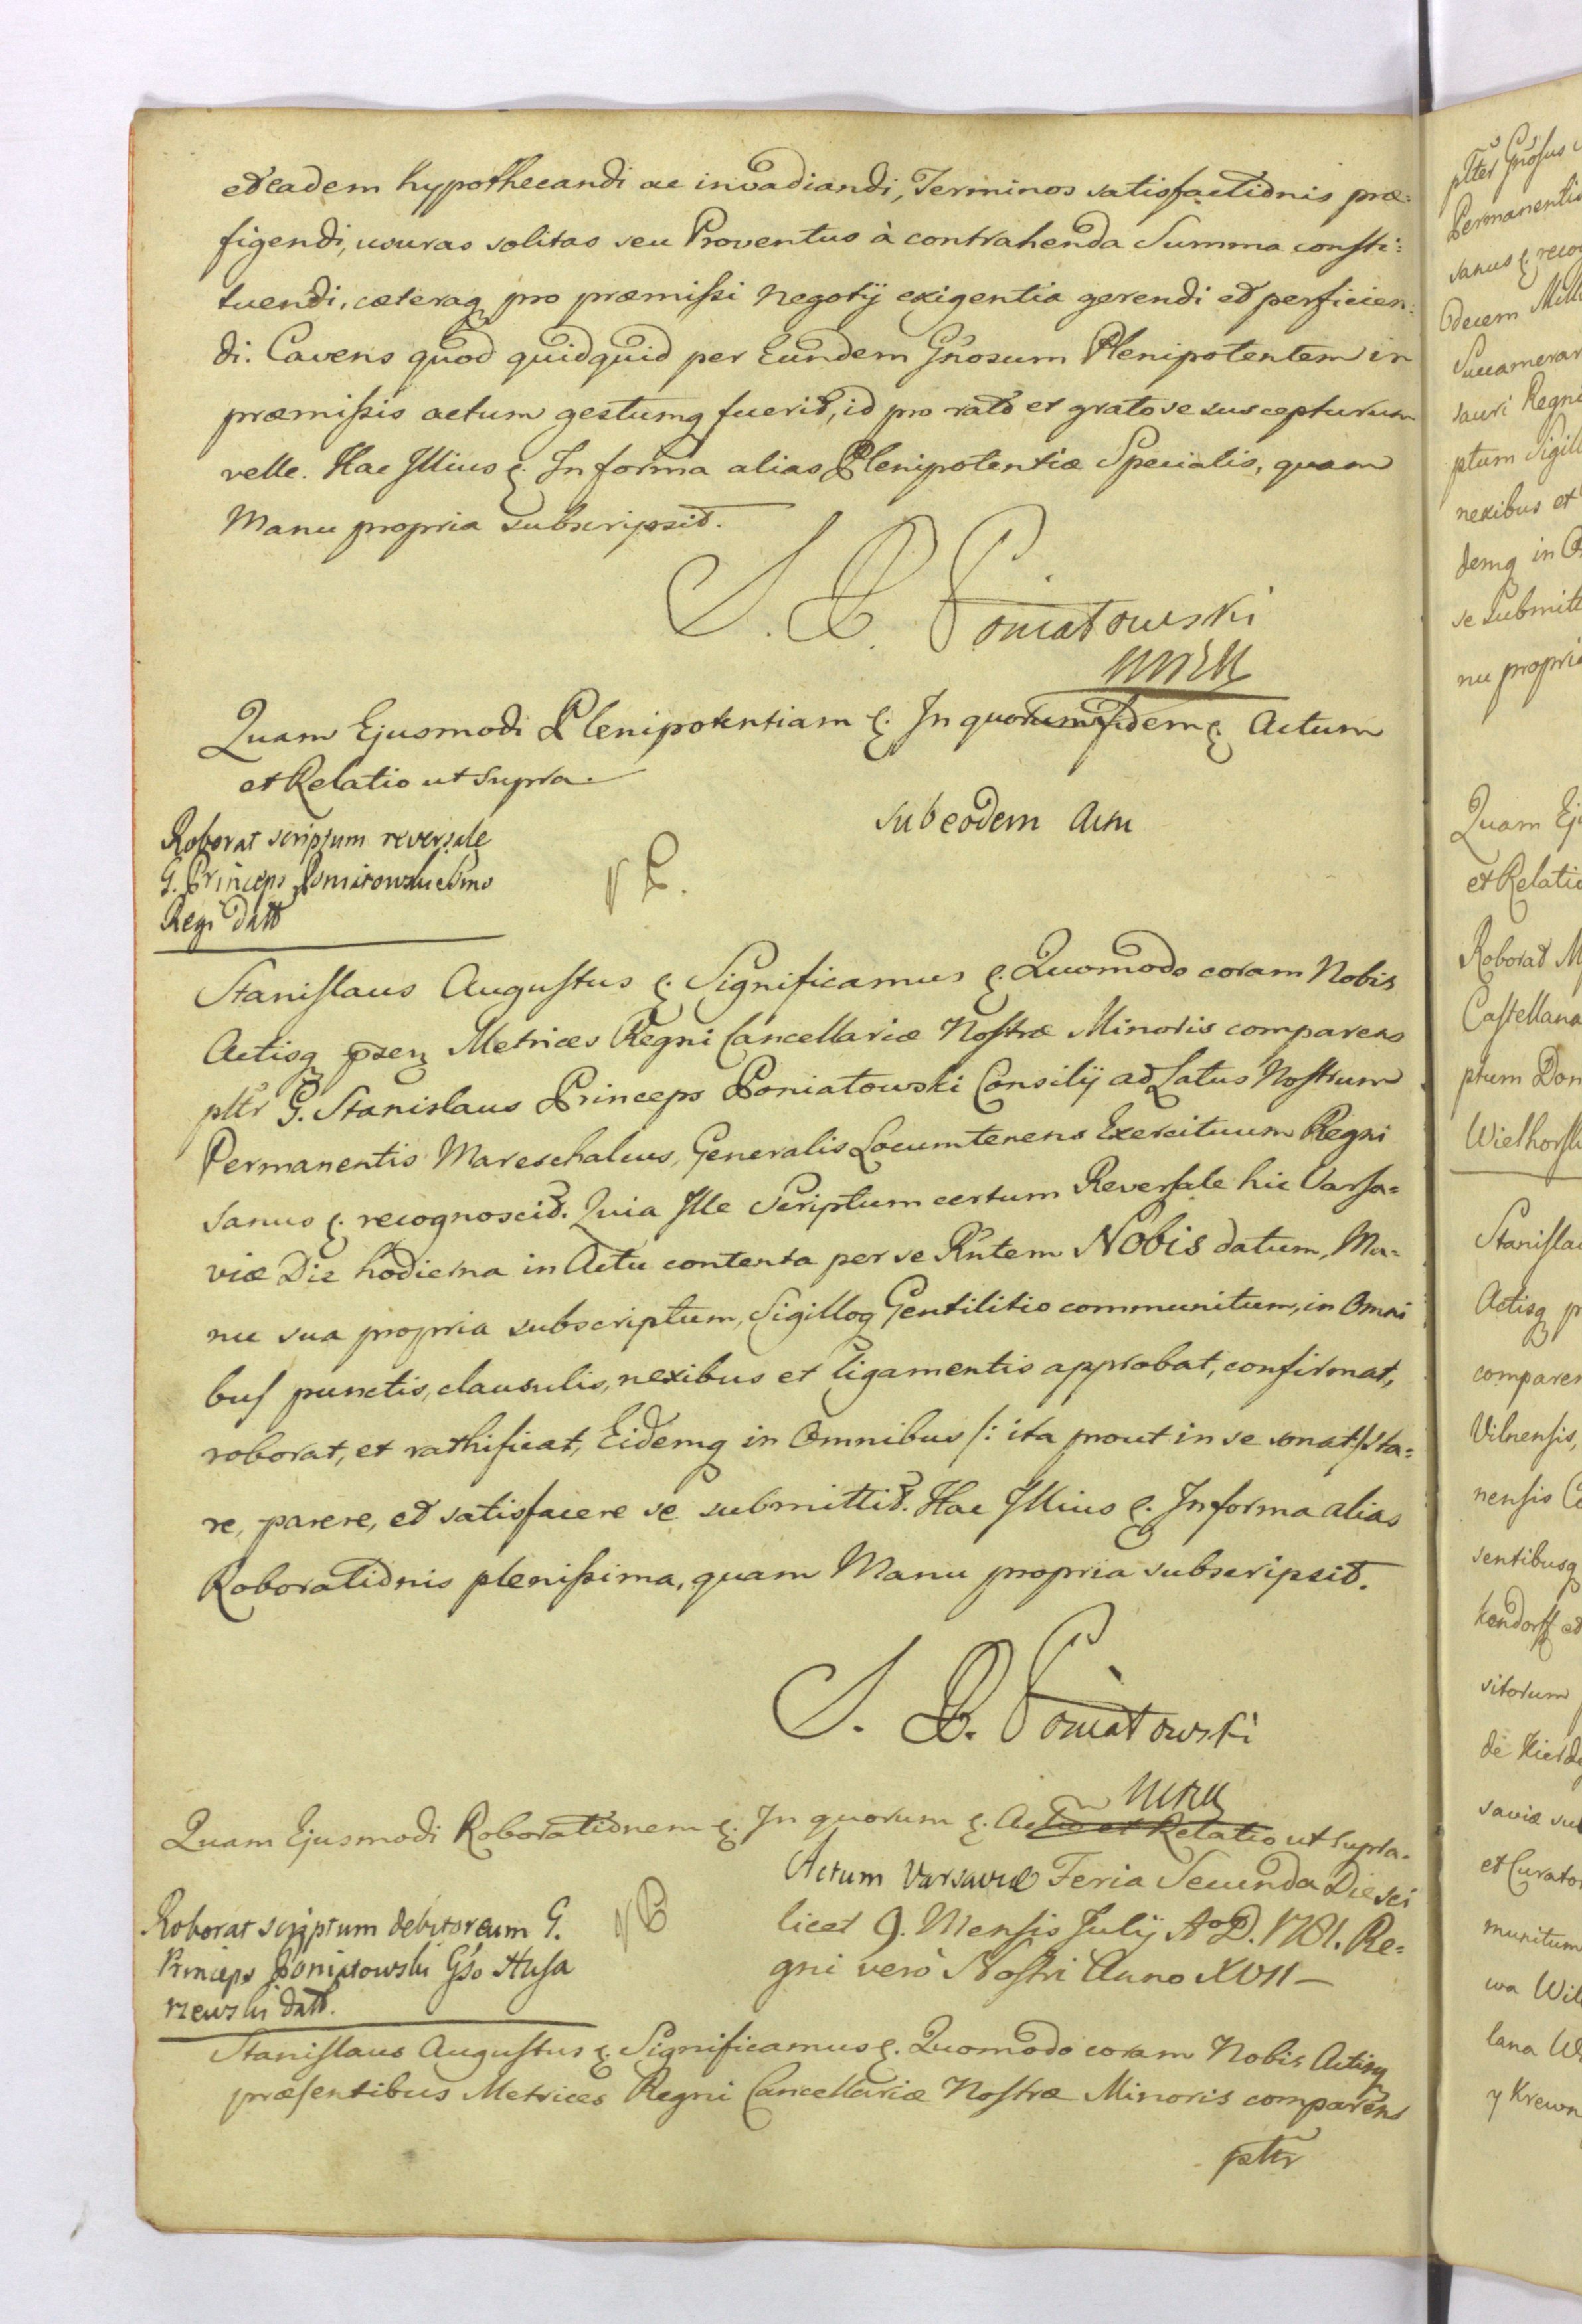 et eadem hypothecandi ac invadiandi, Terminos satisfactionis præ:
figendi, usuras solitas seu Proventus à contrahenda Summa consti:
tuendi, cæteraq pro præmissi Negotij exigentia gerendi et perficien:
di. Cavens quod quidquid per Eundem Gnosum Plenipotentem in
præmissis actum gestumq fuerit, id pro rato et grato se suscepturum
velle. Hac Illius &. In forma alias Plenipotentiæ Specialis, quam
Manu propria subscripsit.
S. P. Poniatowski
Quam Ejusmodi Plenipotentiam &. In quorum fidem &. Actum
et Relatio ut Supra.
sub eodem Actu
Roborat scriptum reversale
G. Princeps Poniatowski Smo
Regi datt
Stanislaus Augustus &. Significamus &. Quomodo coram Nobis
Actisq psen Metrices Regni Cancellariæ Nostræ Minoris comparens
pltr G. Stanislaus Princeps Poniatowski Consilij ad Latus Nostrum
Permanentis Mareschalcus, Generalis Locumtenens Exercituum Regni
Sanus &. recognoscit. Quia Ille Scriptum certum Reversale hic Varsa=
viæ Die hodierna in Actu contenta per se Rntem Nobis datum, Ma=
nu sua propria subscriptum, Sigilloq Gentilitio communitum, in Omni
bus punctis, clausulis, nexibus et ligamentis approbat, confirmat,
roborat, et rathificat, Eidemq in Omnibus /: ita prout in se sonat :/ sta=
re, parere, et satisfacere se submittit. Hac Illius &. In forma alias
Roborationis plenissima, quam Manu propria subscripsit.
S. P. Poniatowski
Quam Ejusmodi Roborationem &. In quorum &. Actio et Relatio ut Supra.
Actum Varsaviæ Feria Secunda Die sci
licet 9. Mensis Julij Ao D. 1781. Re=
gni verò Nostri Anno XVII
Roborat scriptum debitoreum G.
Princeps Poniatowski Gso Husa
rzewski datt.
Stanislaus Augustus &. Significamus &. Quomodo coram Nobis Actisq
præsentibus Metrices Regni Cancellariæ Nostræ Minoris comparens
pltr
pltes Gnosus
Permanentis
sanus &. reco
Decem Mill
Succamerar
sauri Regni
ptum Sigill
nexibus et
demq in O
se submitt
nu propria
Quam Ej
et Relatio
Roborat M
Castellana
ptum Don
Wielhorsk
Stanislau
Actisq p
comparen
Vilnensis,
nensis C
sentibusq
kendorff et
sitorum
de Kierd
saviæ su
et Curator
munitum
wa Wil
lana W
y Krewn